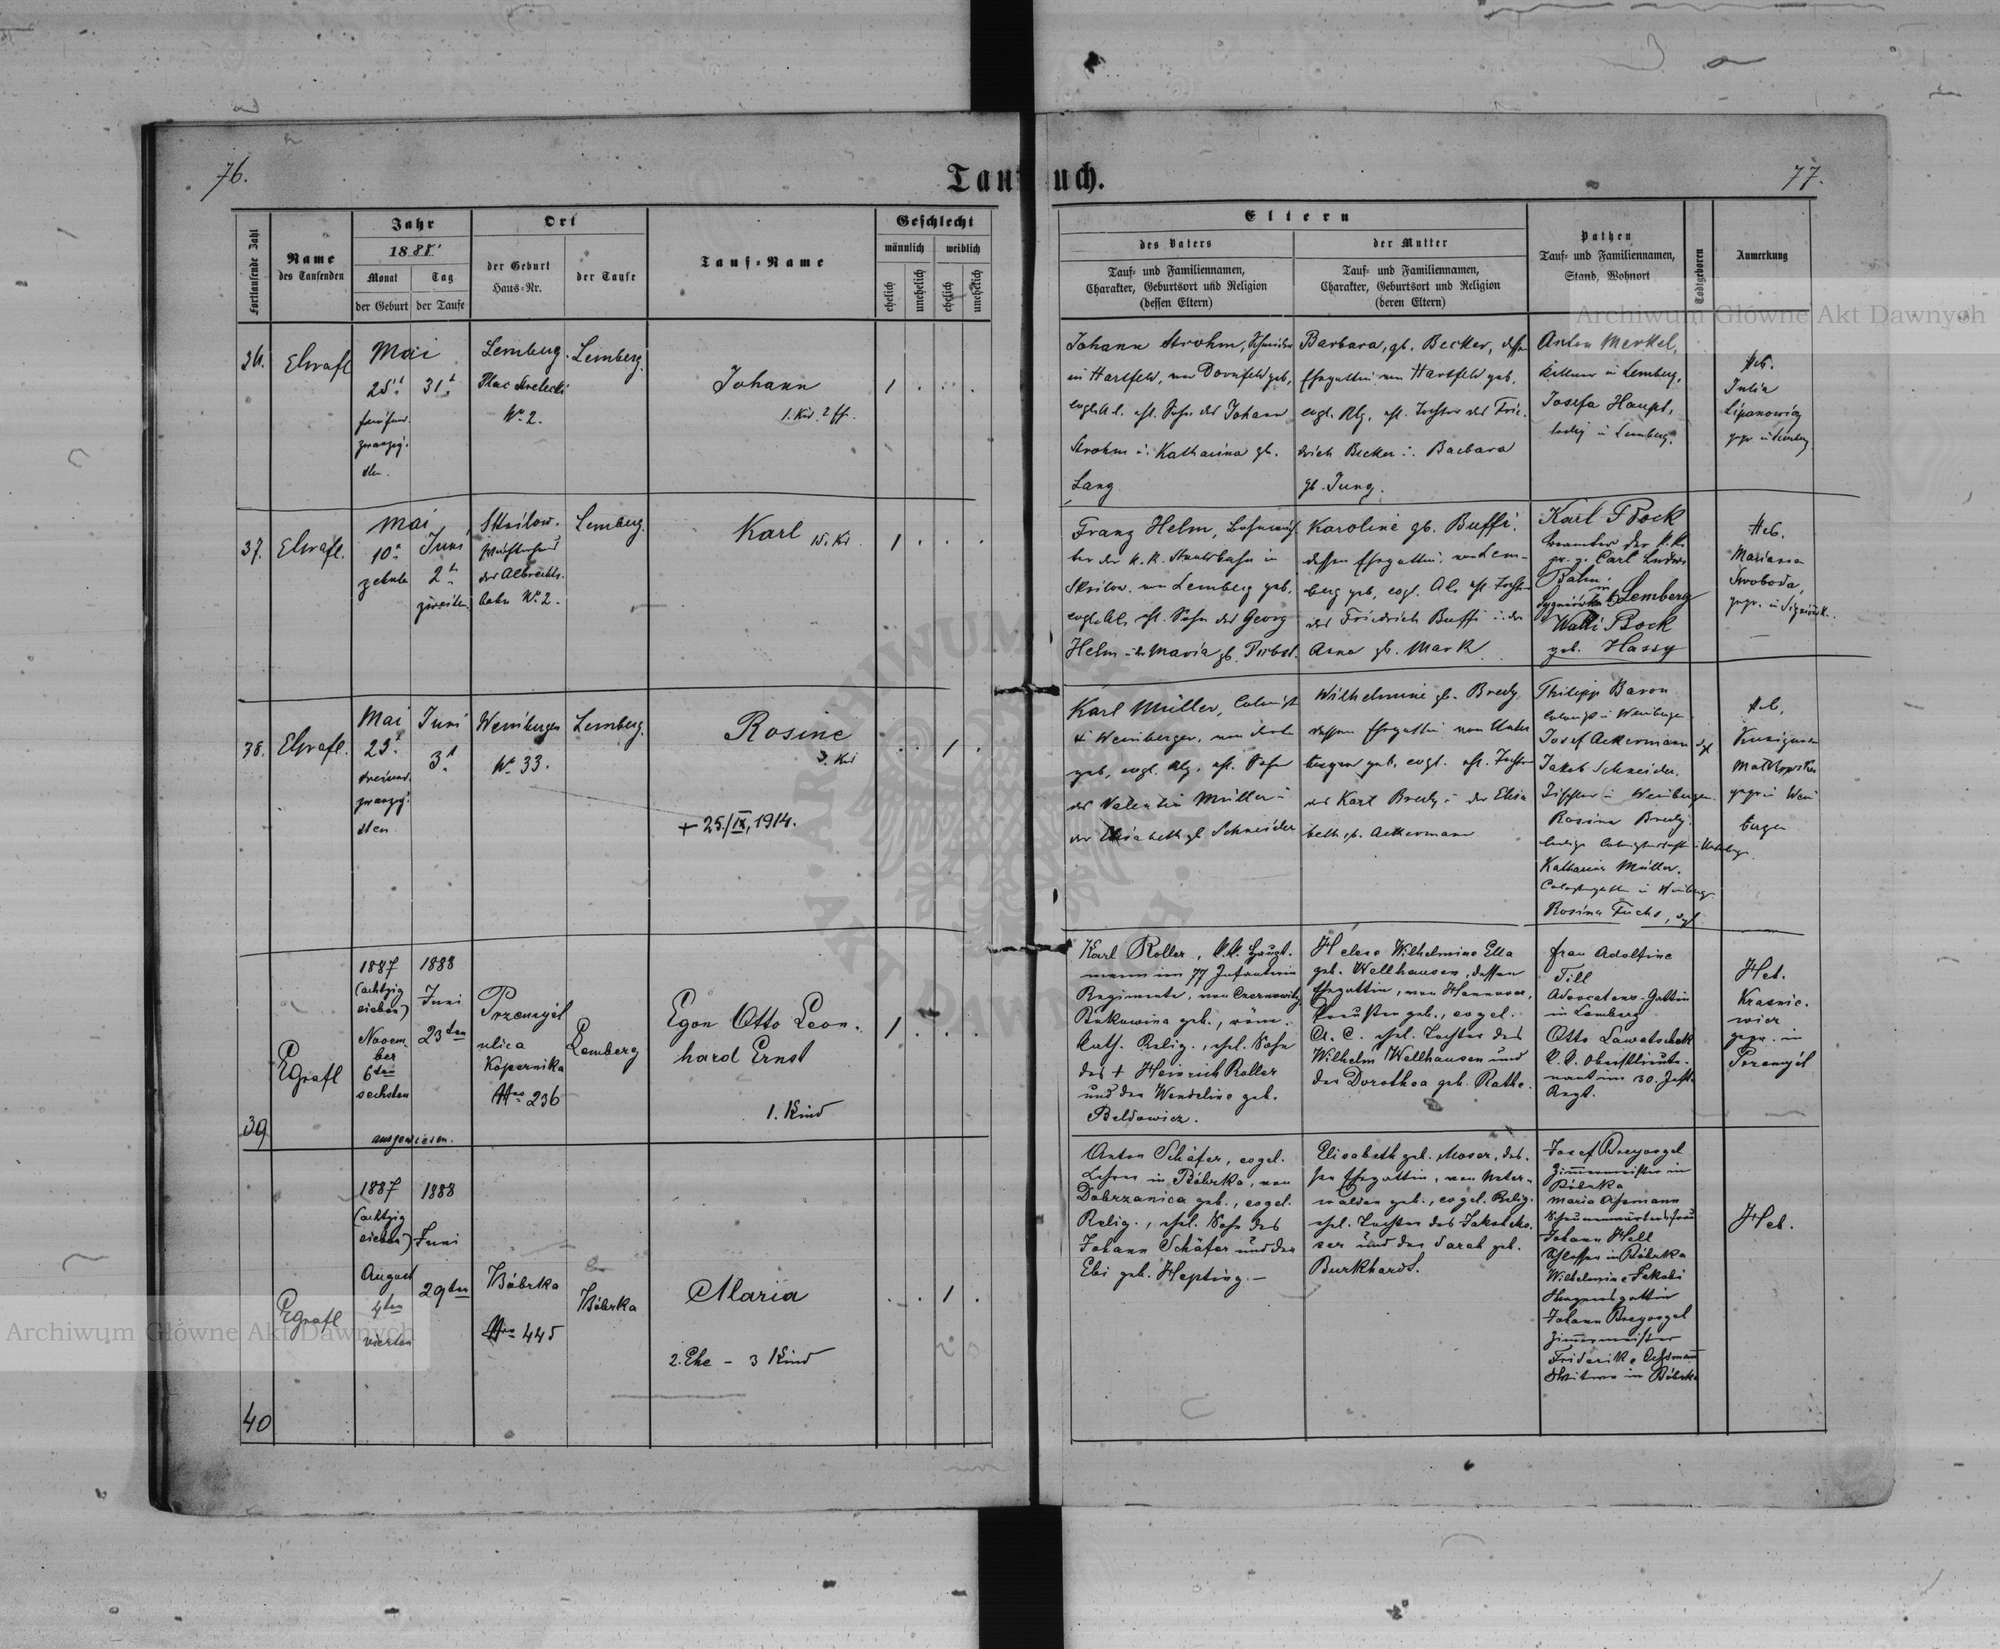 76.
77.
Taufbuch.
Fortlaufende Zahl
Name
des Taufenden
Jahr
1888.
Monat
Tag
der Geburt
der Taufe
Ort
der Geburt
Haus-Nr.
der Taufe
Tauf-Name
Geschlecht
männlich
weiblich
ehelich
unehelich
ehelich
unehelich
Eltern
des Vaters
Tauf- und Familiennamen,
Charakter, Geburtsort und Religion
(dessen Eltern)
der Mutter
Tauf- und Familiennamen,
Charakter, Geburtsort und Religion
(deren Eltern)
Pathen
Tauf- und Familiennamen,
Stand, Wohnort
Todtgeboren
Anmerkung
36.
Mai
25t.
31t.
zwanzig-
Lemberg.
No 2.
Lemberg.
Johann
1
Johann Strohm,
in Hartfeld, von Dornfeld geb,
Sohn des Johann
Strohm u. Katharina gb.
Lang
Barbara, gb. Becker,
Ehegattin von Hartfeld geb,
evgl. Rlg. ehl. Tochter des Frie-
drich Becker u. Barbara
gb. Jung.
Anton Merkel,
Kellner in Lemberg,
Josefa Haupt,
ledig in Lemberg.
Heb.
Julia
Lipanowicz
37.
Mai
10t.
zehnte
Juni
2t.
zweite
No 2.
Lemberg.
Karl
1
Franz Helm,
der k. k. Staatsbahn in
Sknilow. von Lemberg geb,
ehl. Sohn des Georg
Helm u. der Maria gb. Probst.
Karoline gb. Buffi.
dessen Ehegattin. von Lem-
berg geb, evgl. ehl. Tochter
des Friedrich Buffi u. der
Anna gb. Mark
Karl Bock
Beamter der k. k.
Carl Ludwig
Bahn.
in
Lemberg
Walli Bock
geb. Hassy
Heb.
Marianna
Swoboda,
38.
Mai
23t.
zwanzig-
sten
Juni
3t.
Weinbergen
No 33.
Lemberg.
Rosine
3. Kd
+ 25./IX, 1914.
1
Karl Müller, Colonist
geb, evgl. Rlg. ehl. Sohn
des Valentin Müller u.
der Elisabeth gb Schneider
Wilhelmine gb. Bredy
dessen Ehegattin von Unter
bergen geb, evgl. ehl. Tochter
des Karl Bredy u. der Elisa
beth gb. Ackermann
Philipp Baron
Colonist in Weinbergen
Josef Ackermann
Jakob Schneider,
Tischler in Weinbergen
Rosina Bredy
Katharina Müller,
in Weinbergen
Rosina Fuchs,
Heb.
Kunigunde
39
1887
(achtzig
sieben)
Novem-
ber
6ten
sechsten
ausgewiesen.
1888
Juni
23ten
Przemyśl
ulica
Kopernika
Nro 236
Lemberg
Egon Otto Leon-
hard Ernst
1. Kind
1
Karl Roller, k. k. Haupt-
mann im 77 Infanterie
Regimente, von Czernowitz,
Bukowina geb., röm.
kath. Relig., ehel. Sohn
des + Heinrich Roller
und der Wendeline geb.
Beldowicz.
Helene Wilhelmine Ella
geb. Wellhausen, dessen
Ehegattin, von Hannover,
Preußen geb., evgel.
A. C. ehel. Tochter des
Wilhelm Wellhausen und
der Dorothea geb. Rathe.
Frau Adolfine
Till
Advocatens-Gattin
in Lemberg
Otto Lawatschek
k. k. Oberstlieute-
nant im 30. Inft.
Regt.
Heb.
Krasnie-
wicz
gepr. in
Przemyśl
40
1887
(achtzig
sieben)
August
4ten
vierten
1888
Juni
29ten
Bóbrka
Nro 445
Bóbrka
Maria
2. Ehe - 3 Kind
1
Anton Schäfer, evgel.
Lehrer in Bóbrka, von
Dobrzanica geb., evgel.
Relig., ehel. Sohn des
Johann Schäfer und der
Evi geb. Hepting. -
Elisabeth geb. Moser, des-
sen Ehegattin, von Unter-
walden geb., evgel. Relig.
ehel. Tochter des Jakob Mo-
ser und der Sarah geb.
Burkhardt.
Josef Breyvogel
Zimmermeister in
Bóbrka
Johann Hell
Schlosser in Bóbrka
Wilhelmine Jakobi
Johann Breyvogel
Zimmermeister
in Bóbrka
Heb.
Archiwum Główne Akt Dawnych
Archiwum Główne Akt Dawnych